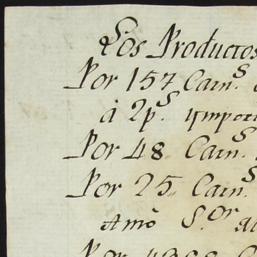 Los Productos
Por 157 Carn.s
à 2p.s ymport
Por 48 Carn.s
Por 25 Carn.s
Amō S.or
Por